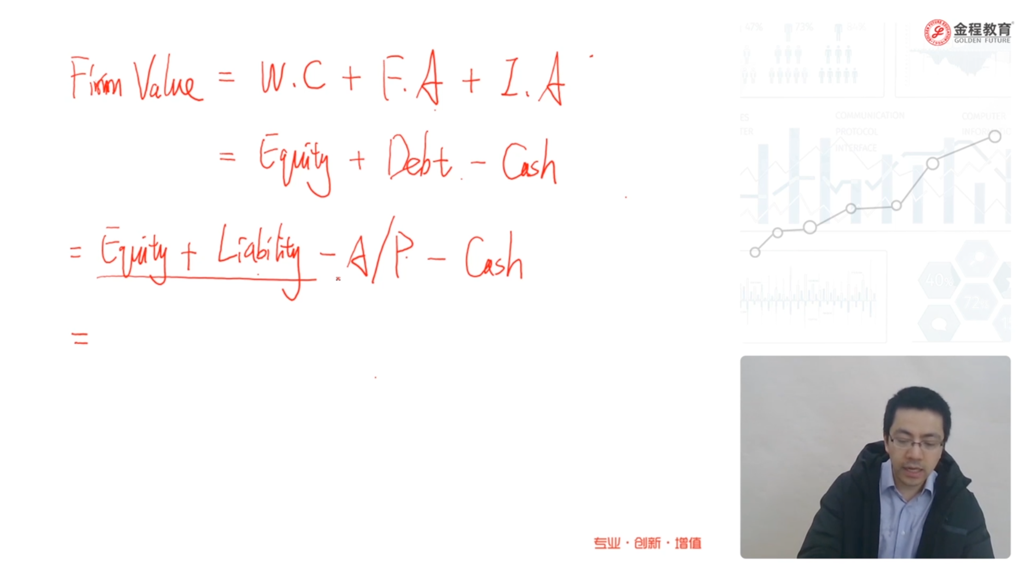 金程教育
GOLDEN FUTURE
Firm Value = W.C + F.A + I.A
= Equity + Debt - Cash
= Equity + Liability - A/P - Cash
=
COMMUNICATION
PROTOCOL
INTERFACE
专业·创新·增值